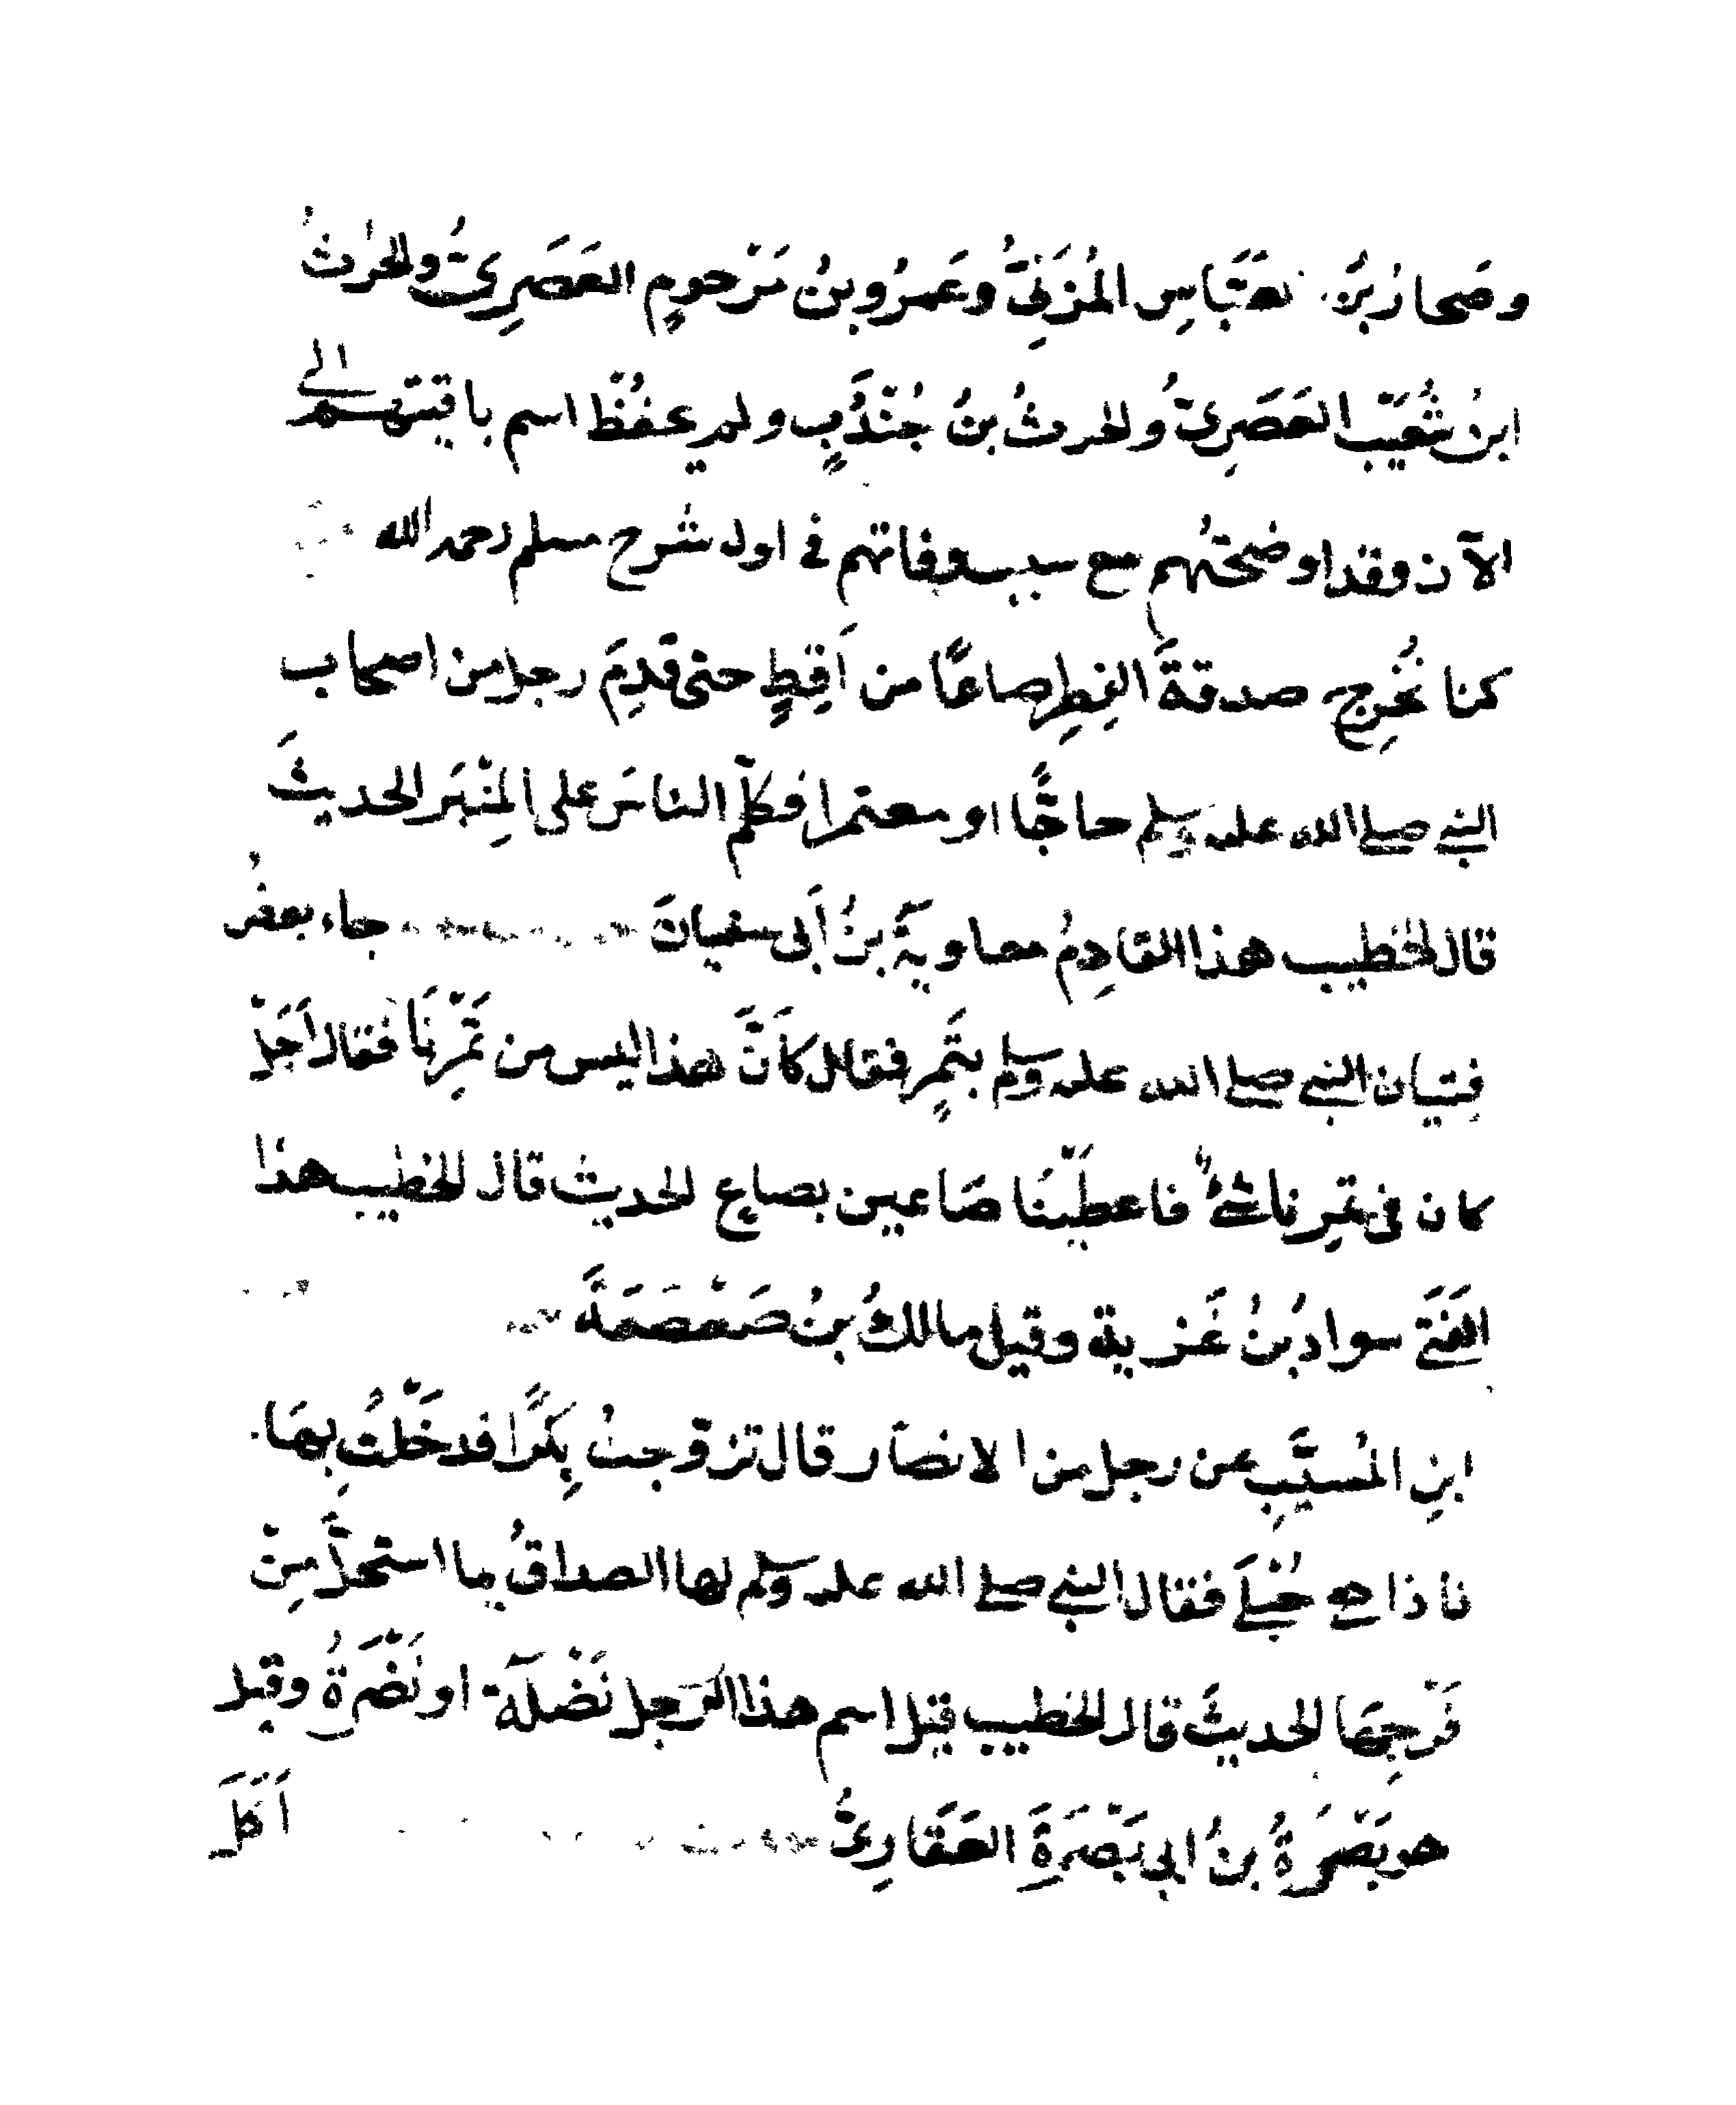 وصُحارُ بنُ العَبّاسِ المُزَنيُّ وعَمرُو بنُ مَرْحومٍ العَصَرِيُّ والحرثُ
ابنُ شُعَيْبٍ العَصَرِيُّ والحرثُ بنُ جُنْدُبٍ ولم يحفُظْ اسم باقيتهم الى
الآن وقد اوضحتُهم مع سبب وفاتهم فى اول شرح مسلم رحمه الله
كنا نُخرِج صدقةَ الفِطرِ صاعًا من اَقِطٍ حتى قدِمَ رجل من اصحاب
النبى صلى الله عليه وسلم حاجًّا او معتمرا فكلّم الناسَ على المِنْبَر الحديثَ
قال الخطيب هذا القادِمُ معاويةُ بنُ أبى سفيانَ جاء بعضُ
فِتيان النبى صلى الله عليه وسلم بتَمرٍ فقال كأنَّ هذا ليس من تَمْرِنَا فقال اَجَلْ
كان فى تمرِنا شئٌ فاعطَيْنَا صَاعين بصاعٍ الحديث قال الخطيب هذا
الفَتَى سوادُ بنُ غَزية وقيل مالكُ بنُ صَعْصَعَةَ
ابنِ المُسيَّبِ عن رجل من الانصار قال تزوجتُ بِكرًا فدخَلْتُ بِهَا
فاذا هى حُبْلَى فقال النبى صلى الله عليه وسلم لها الصداقُ بما استحلَّ مِنْ
فَرْجِهَا الحديثَ قال الخطيب قيل اسم هذا الرَجل نَضْلَة او نَضْرَةُ وقيل
هو بَصْرَةُ بنُ ابى بَصْرَةَ الغفارىُّ أَكَلَ